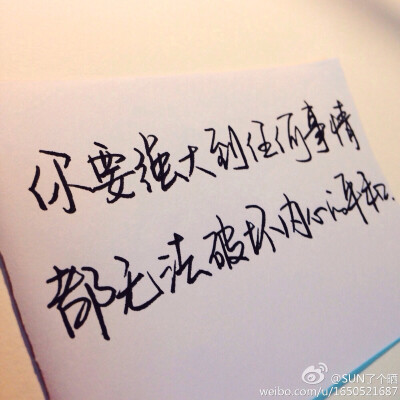 你要强大到任何事情
都无法破坏内心的平和.
@SUN了个晒
weibo.com/u/1650521687